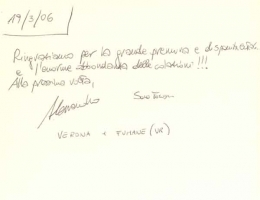 19/3/06
Ringraziamo per la grande premura e disponibilità
e l'enorme abbondanza delle colazioni!!!
Alla prossima volta,
Alessandro
VERONA + FUMANE (VR)